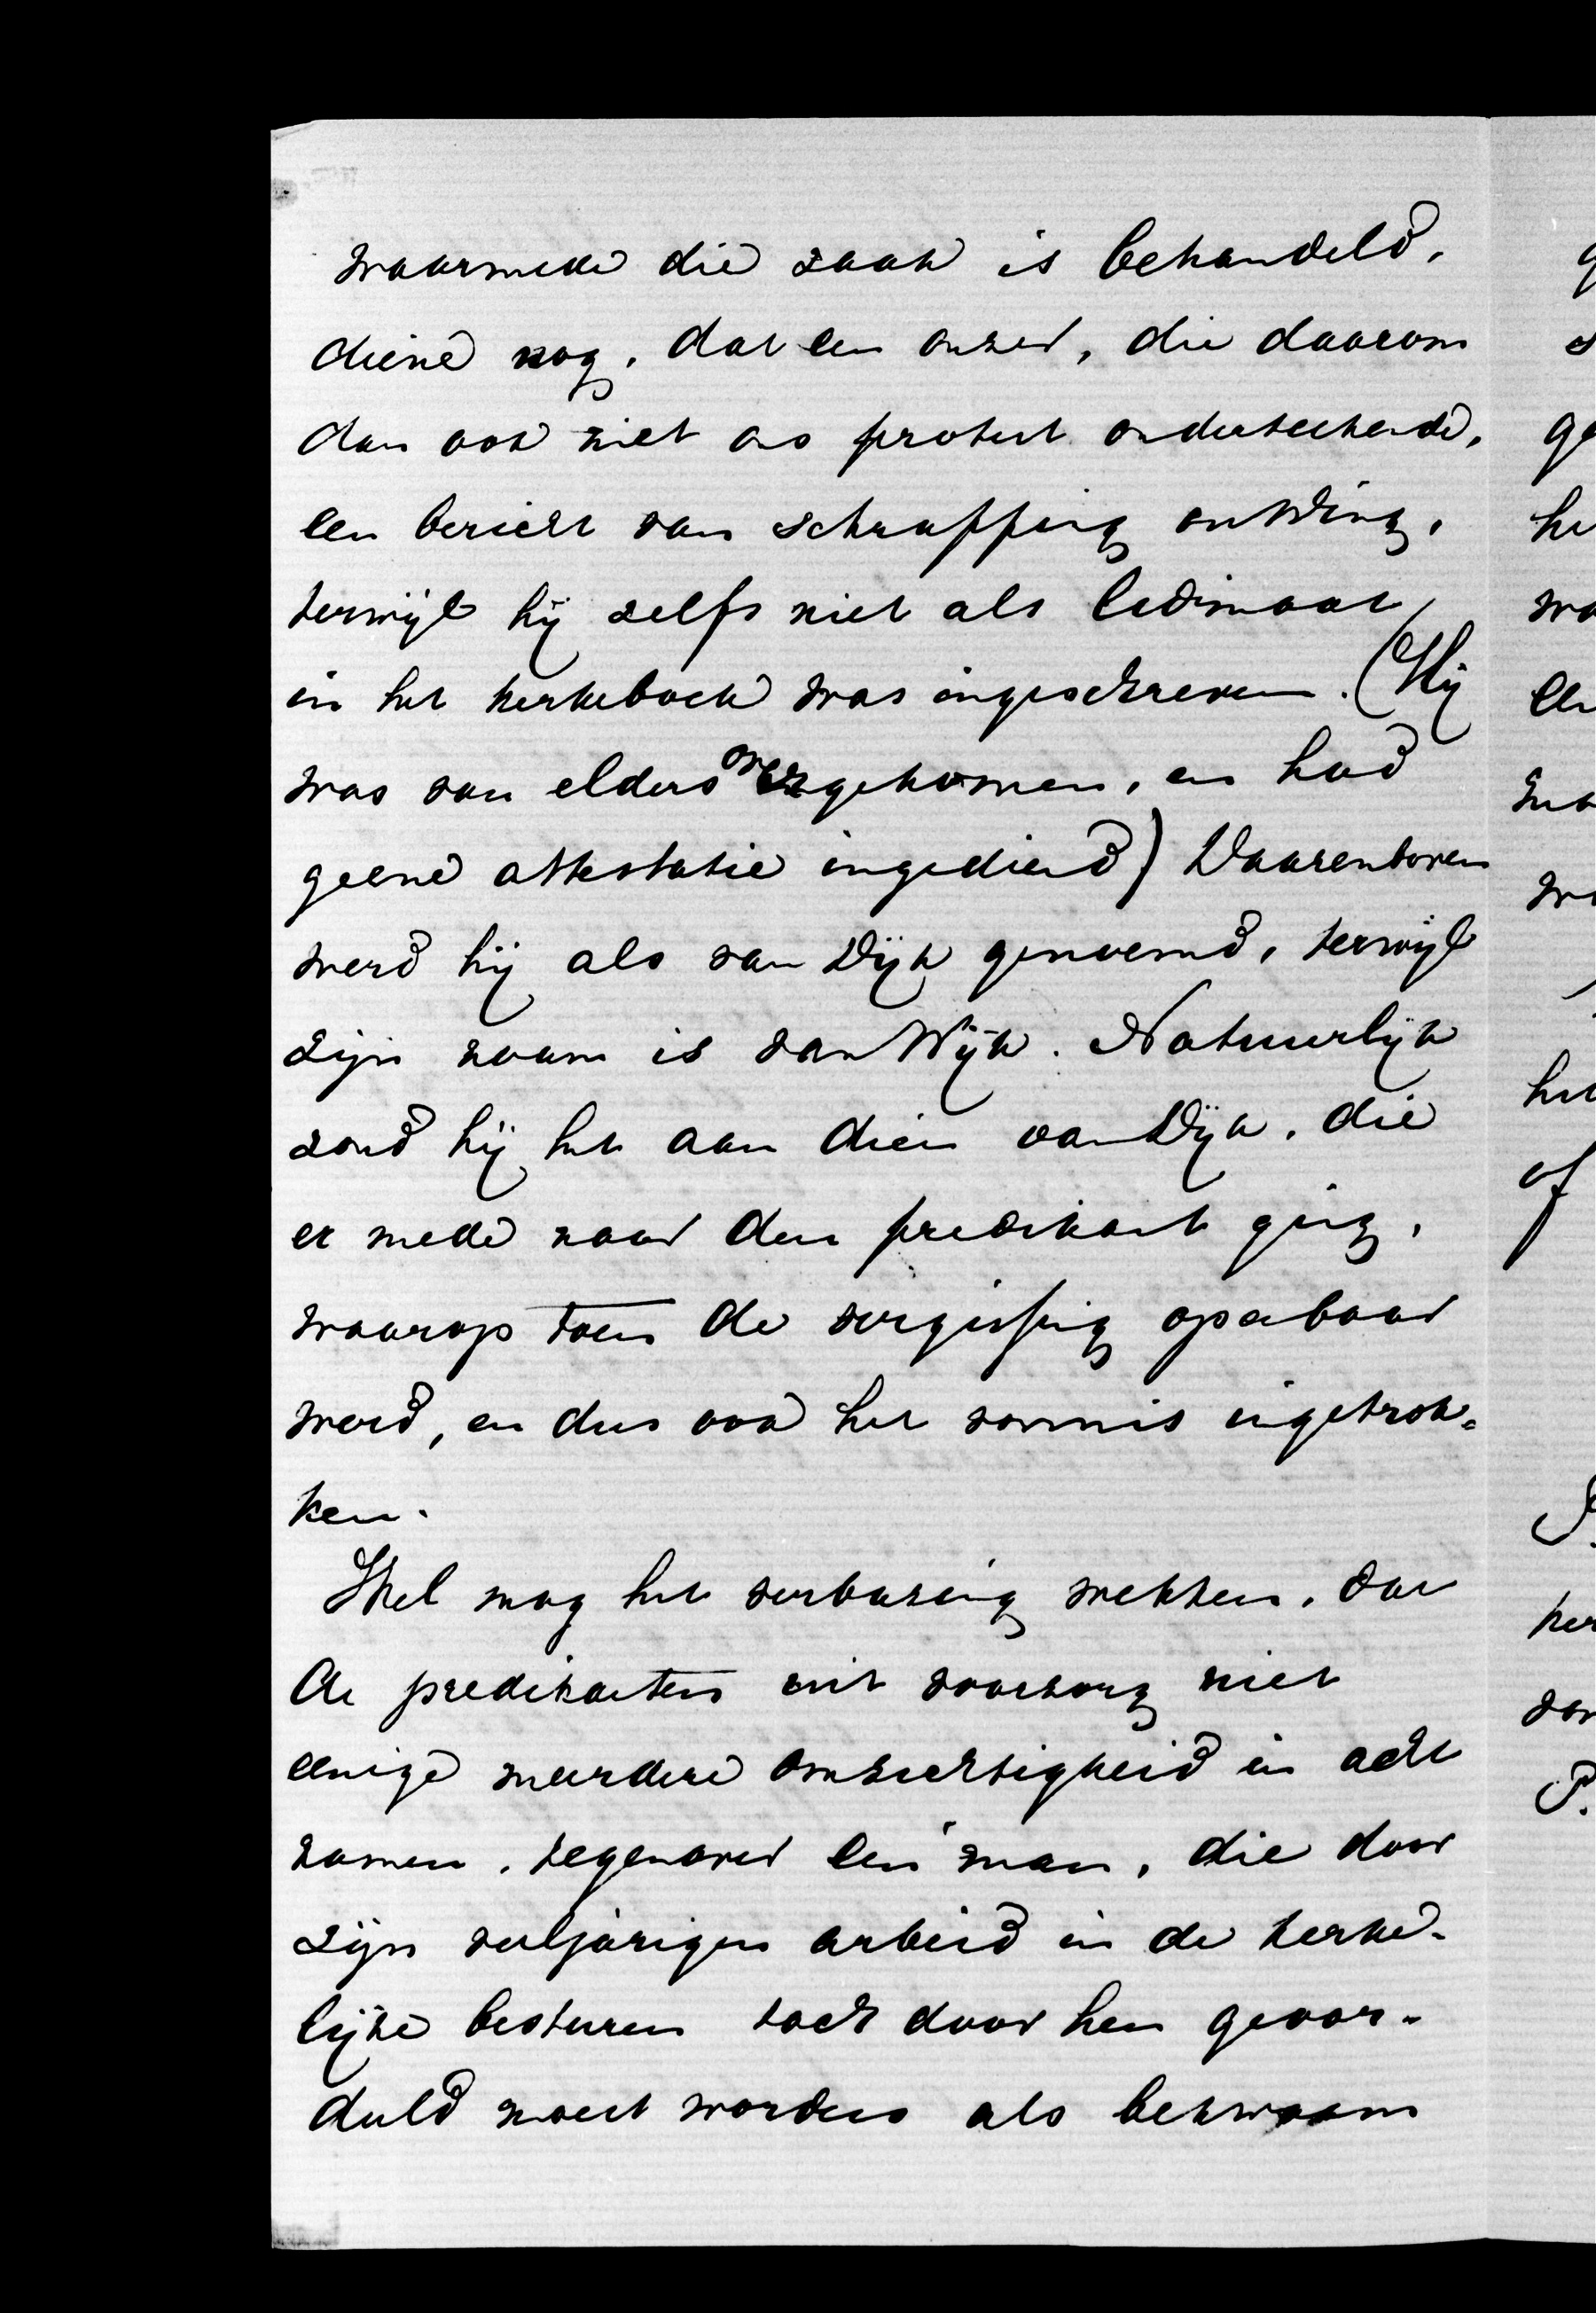 waarmede die zaak is behandeld,
diene nog, dat een onzer, die daarom
dan ook niet ons protest onderteekende,
een bericht van schrapping ontving,
terwijl hij zelfs niet als lidmaat
in het kerkeboek was ingeschreven. (Hij
was van elders overgekomen, en had
geene attestatie ingediend) Daarenboven
werd hij als van Dijk genoemd, terwijl
zijn naam is van Wijk. Natuurlijk
zond hij het aan dien van Dijk, die
er mede naar den predikant ging,
waarop toen de vergissing openbaar
werd, en dus ook het vonnis ingetrok=
ken.
Wel mag het verbazing wekken, dat
de predikanten uit voorzorg niet
eenige meerdere omzichtigheid in acht
namen, tegenover een man, die door
zijn veeljarigen arbeid in de kerke-
lijke besturen toch door hen geoor-
deeld moest worden als bekwaam